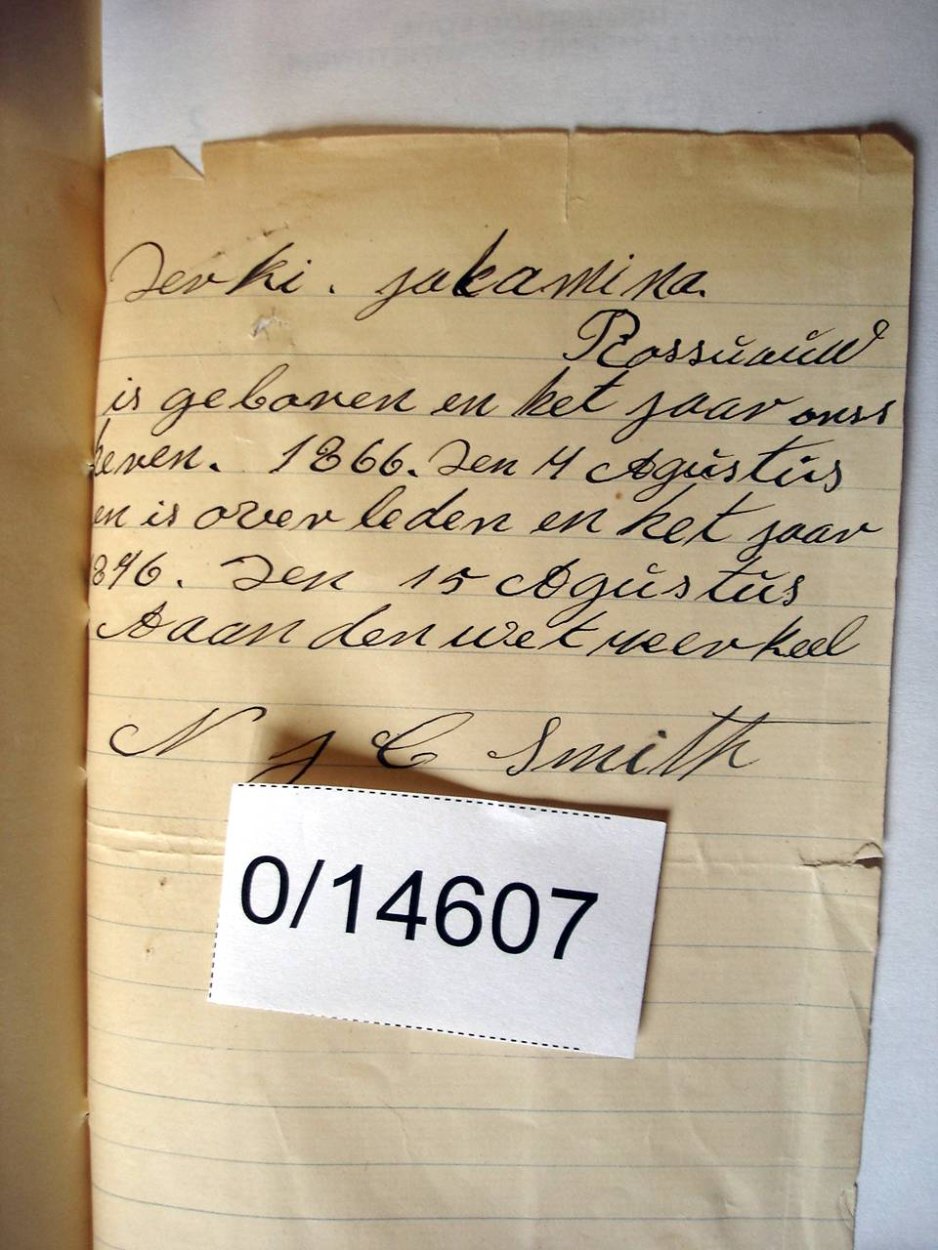 Derki. jakamina.
Rossuouw
is geboren en het jaar onss
heren. 1866. Den 4 Agustus
en is over leden en het jaar
896. Den 15 Agustus
Aaan den wet
N J C Smith
0/14607